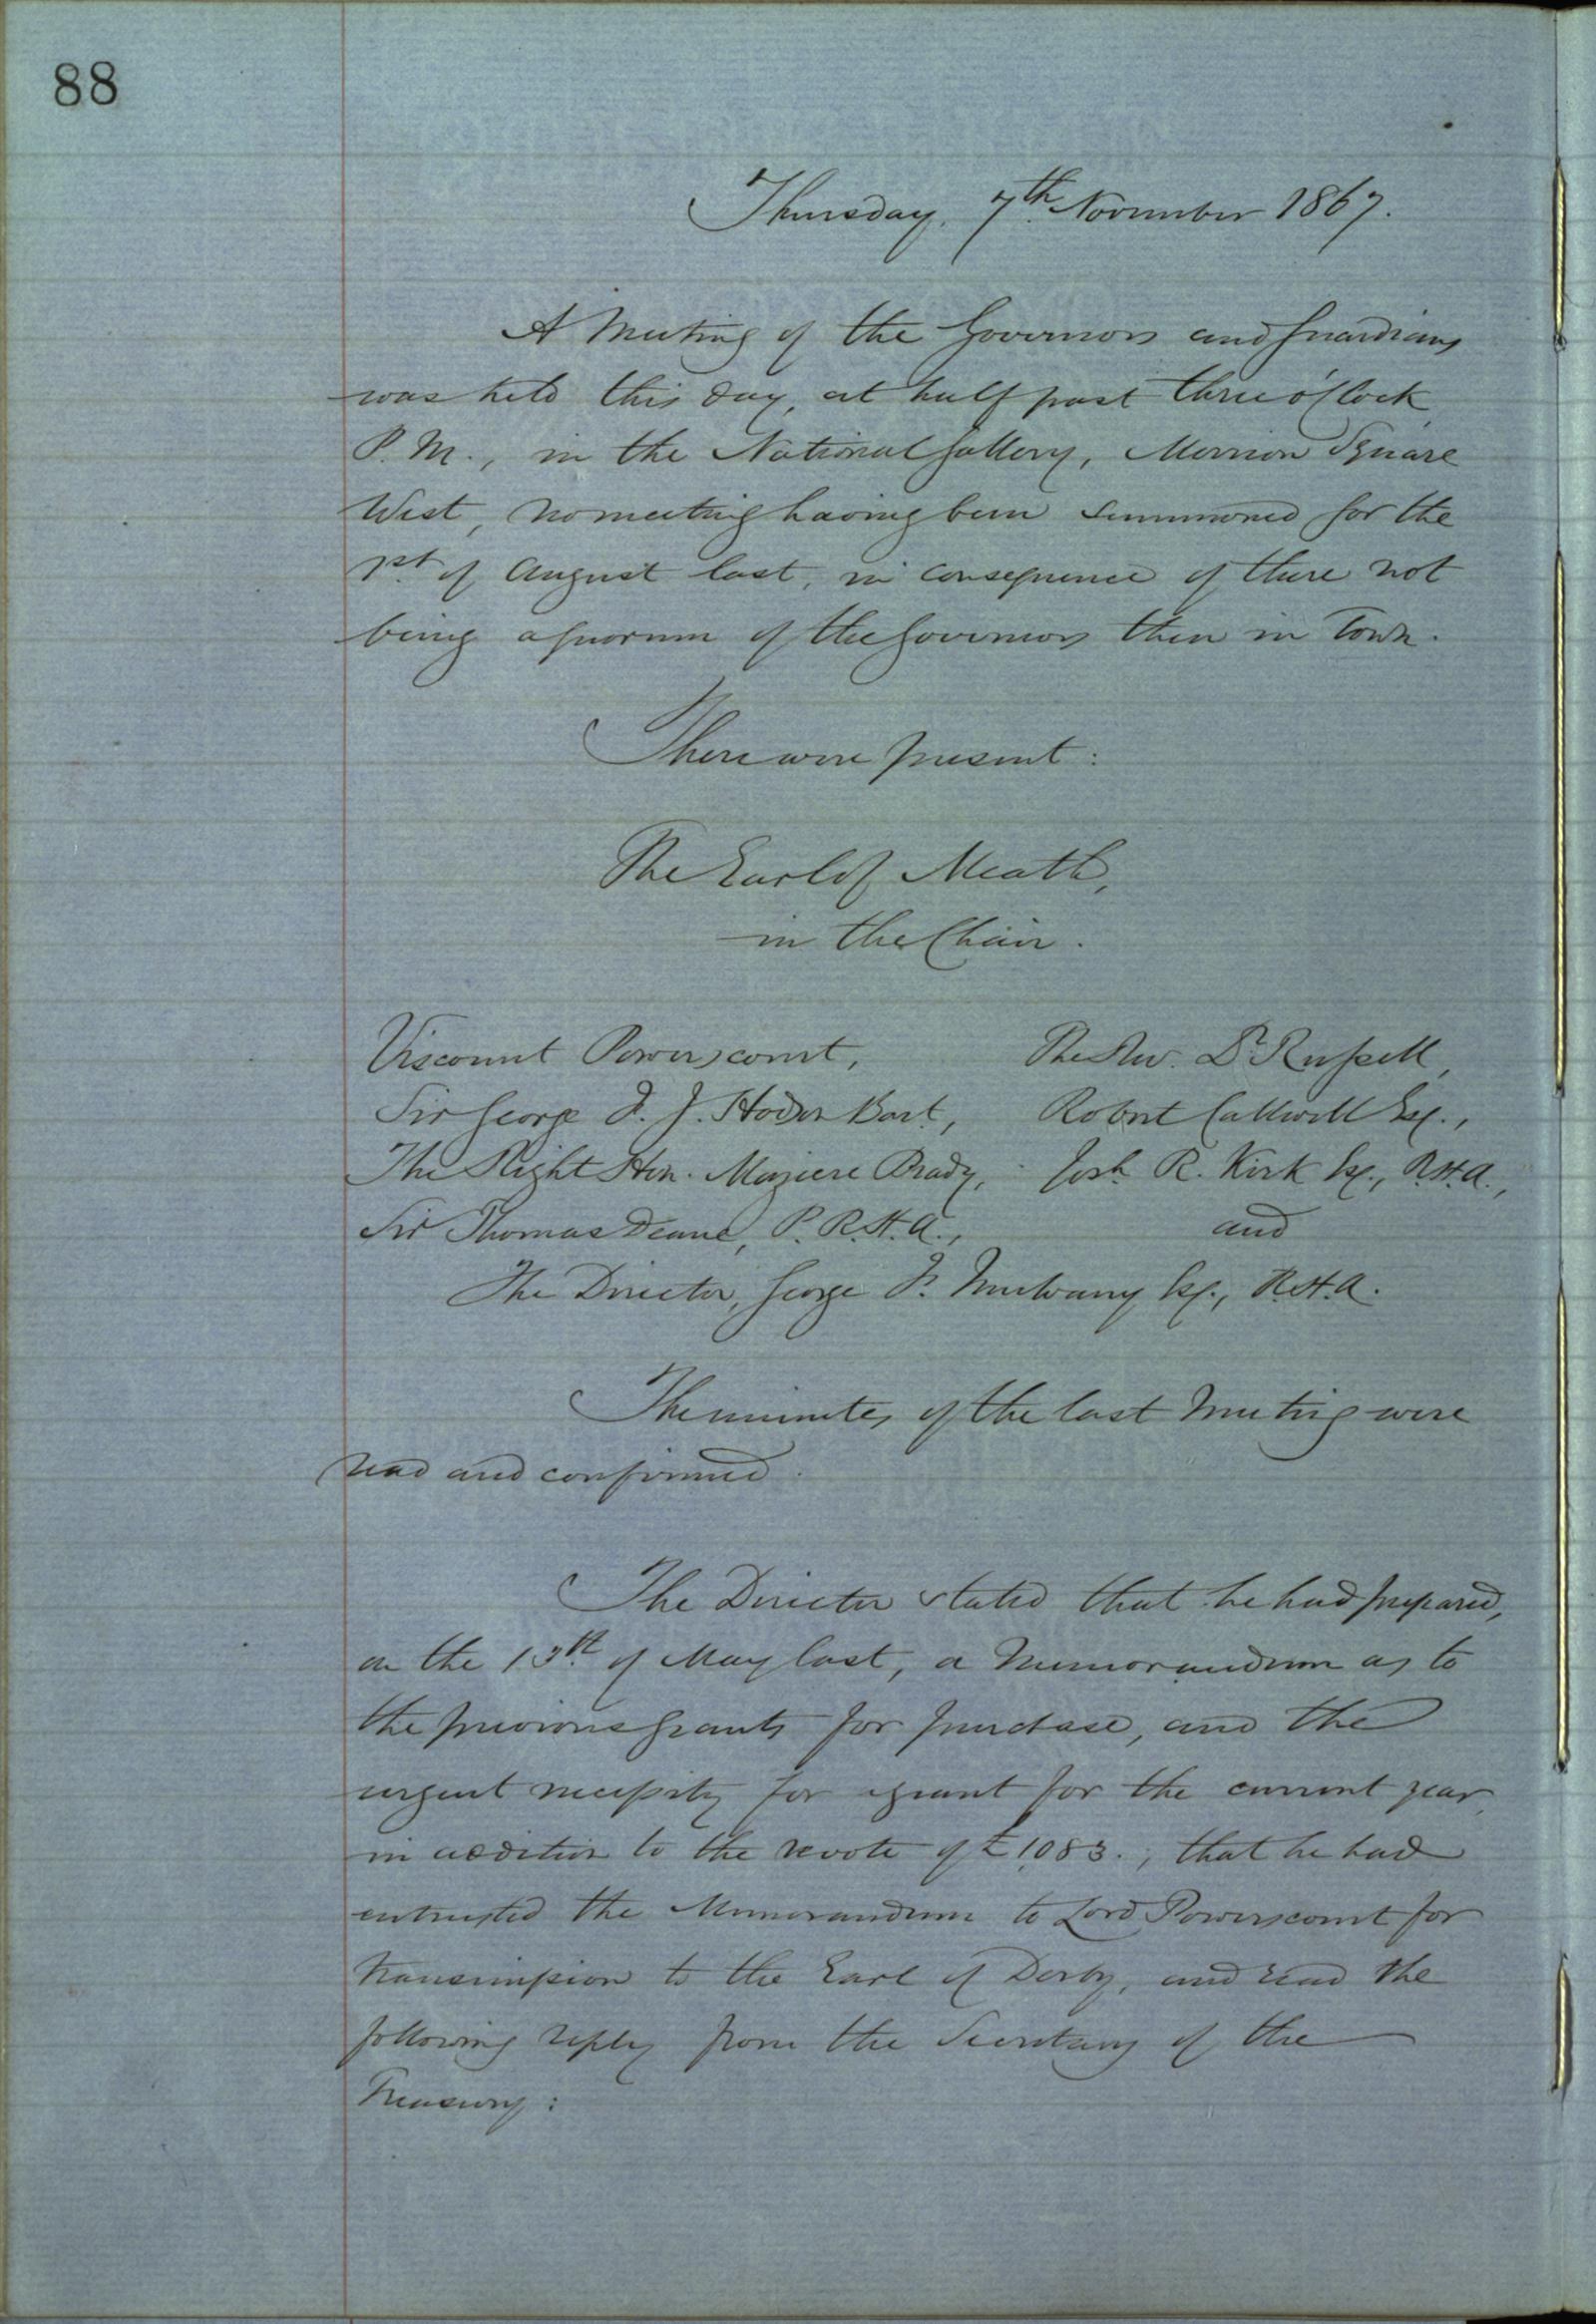 88
Thursday, 7th November 1867.
A Meeting of the Governors and Guardians
was held this day, at half past three o'Clock
P.M., in the National Gallery, Merrion Square
West, no meeting having been summoned for the
1st of August last, in consequence of there not
being a quorum of the Governors then in Town.
There were present:
The Earl of Meath,
in the Chair.
Viscount Powerscourt, The Rev. Dr Russell,
Sir George F. J. Hodson Bart., Robert Callwell Esq.,
The Right Hon. Maziere Brady, Josh. R. Kirk Esq., R.H.A.,
Sir Thomas Deane, P.R.H.A., and
The Director, George F. Mulvany Esq., R.H.A.
The minutes of the last Meeting were
read and confirmed.
The Director stated that he had prepared,
on the 13th of May last, a Memorandum as to
the previous grants for purchase, and the
urgent necessity for a grant for the current year
in addition to the revote of £1,083.; that he had
entrusted the Memorandum to Lord Powerscourt for
transmission to the Earl of Derby, and read the
following reply from the Secretary of the
Treasury: